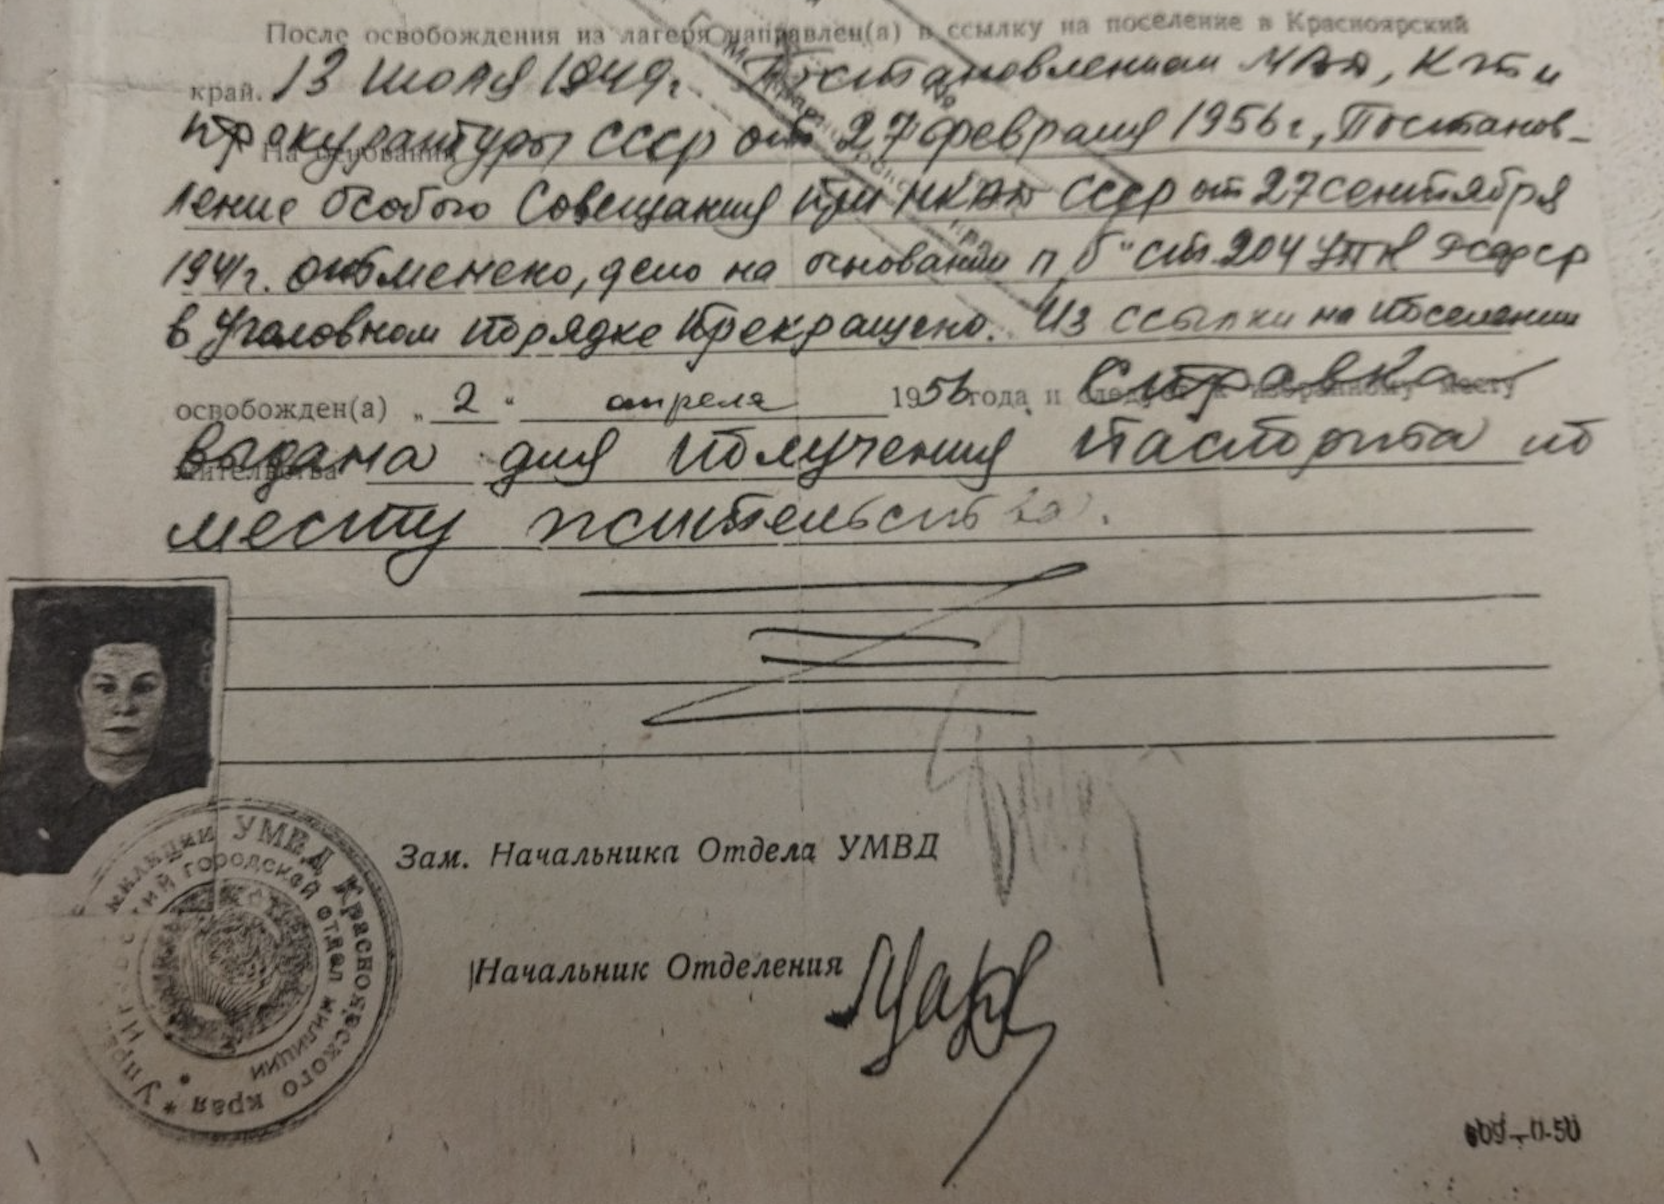 После освобождения из лагеря направлен(а) в ссылку на поселение в Красноярский
край. 13 июля 1949г. Постановлением МВД, КГБ и
На основании
прокуратуры СССР от 27 февраля 1956 г, Постанов-
ление Особого Совещания при НКВД СССР от 27 сентября
1941г. отменено, дело на основании п „б" ст 204 УПК РСФСР
в уголовном порядке прекращено. Из ссылки на поселении
освобожден(а) „2" апреля 1956 года и следует к избранному месту Справка
жительства
выдана для получения паспорта по
месту жительства.
Зам. Начальника Отдела УМВД
Начальник Отделения
милиции УМВД Красноярского края
городской отдел милиции